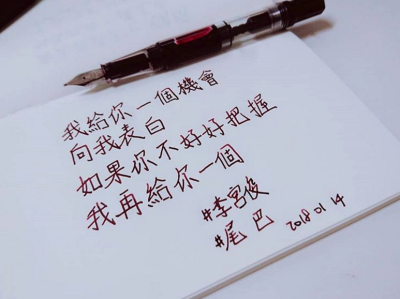 我給你一個機會
向我表白
如果你不好好把握
我再給你一個
#李宮俊
#尾巴 2018 01 14